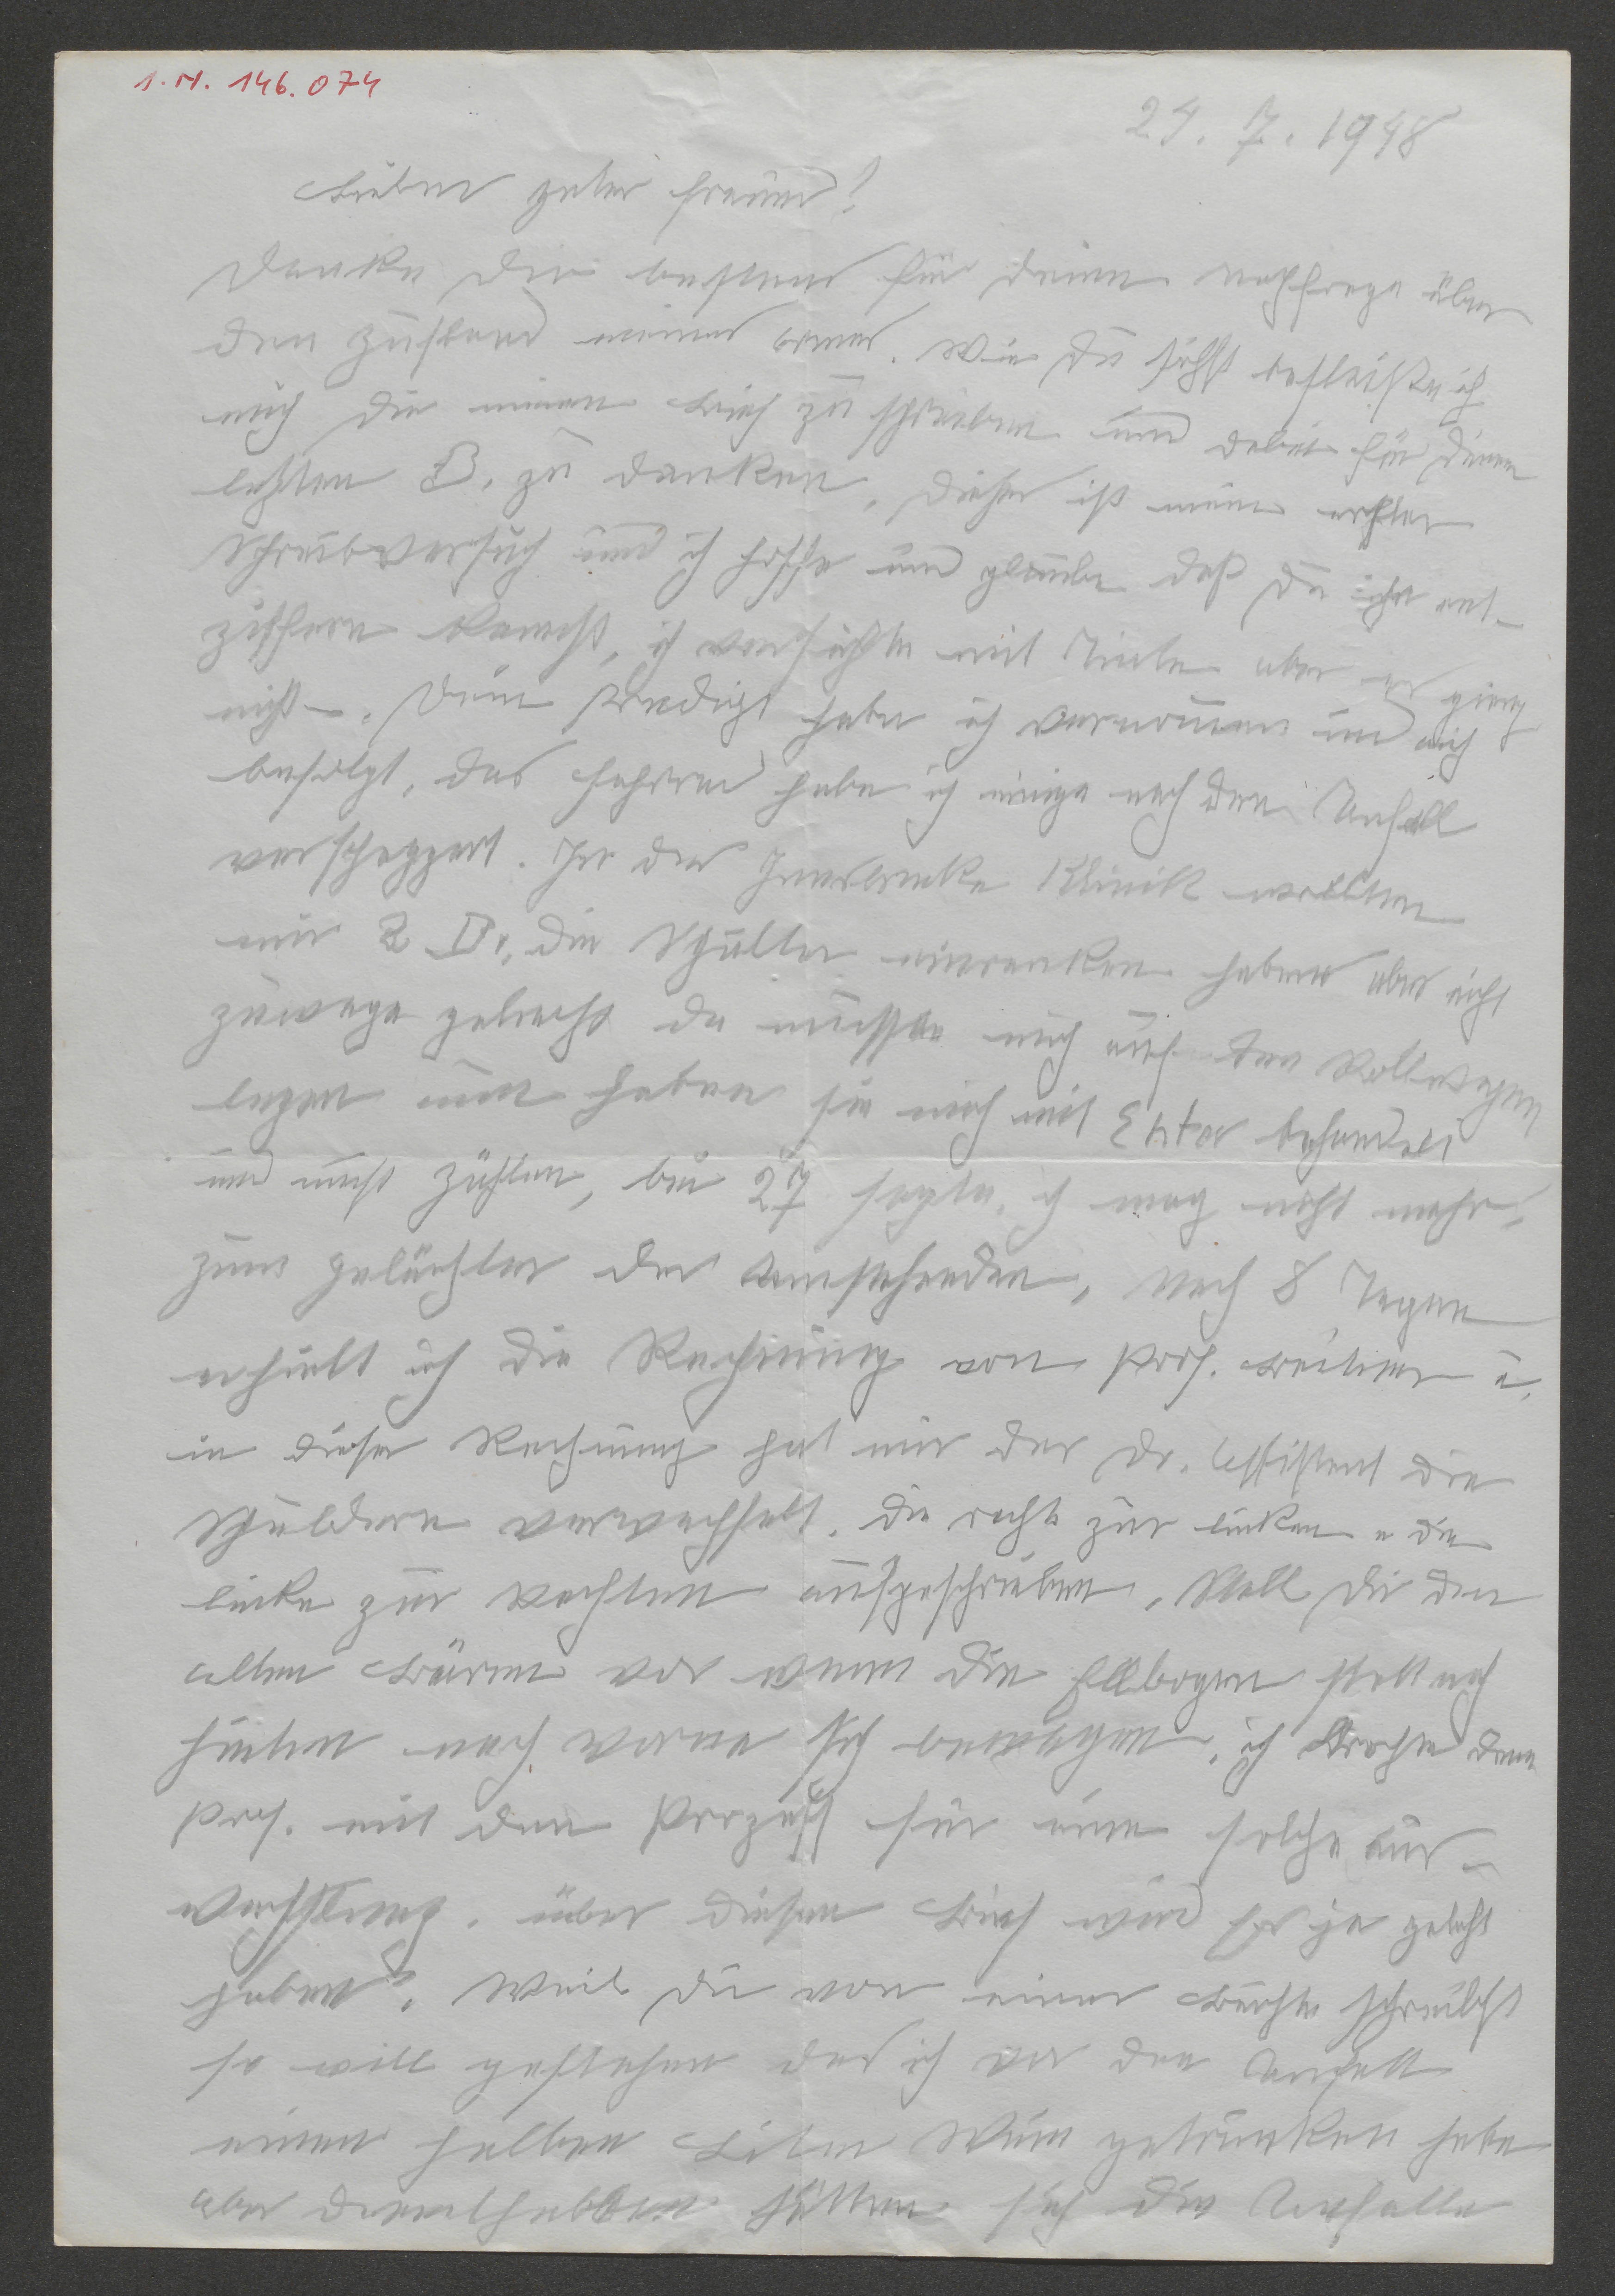 I.N. 146.074
24. 7. 1948
Lieber guter Freund!
Danke Dir bestens für Deine Nachfrage über
den Zustand meines Armes. Wie Du siehst befleiße ich
mich Dir einen Brief zu schreiben und dabei für Deinen
letzten B. zu danken. Dieser ist mein erster
Schreibversuch und ich hoffe und glaube daß Du ihn ent-
ziffern kannst, ich versuchte mit Tinte aber es ging
nicht. Deine Predigt habe ich vernommen und auch
befolgt, das Fahrrad habe ich einige nach dem Unfall
verscheppert. In der Innsbrucke Klinik wollten
mir 2 D. die Schulter einrenken habens aber nicht
zuwege gebracht da musste mich auf den Rollwagen
legen nun haben sie mich mit Ehter behandelt
und must zählen, bei 27 sagte, ich mag nicht mehr,
zum Gelächter der Umstehenden, Nach 8 Tagen
erhielt ich die Rechnung von Prof. u.
in dieser Rechnung hat mir der Dr. Assistent die
Schuldern verwechselt. die rechte zur linken u die
linke zur rechten aufgeschrieben, Stell Dir den
alten vor wenn die Ellbogen statt nach
hinten nach vorne sich bewegen, ich drohte dem
Prof. mit dem Prozess für eine solche Aus-
wechslung. über diesen Brief wird Er ja gelacht
haben? Weil Du von einer schreibst
so will gestehen das ich vor den Unfall
einen halben Liter Wein getrunken habe
aber derenthalben hätten sich die Unfälle